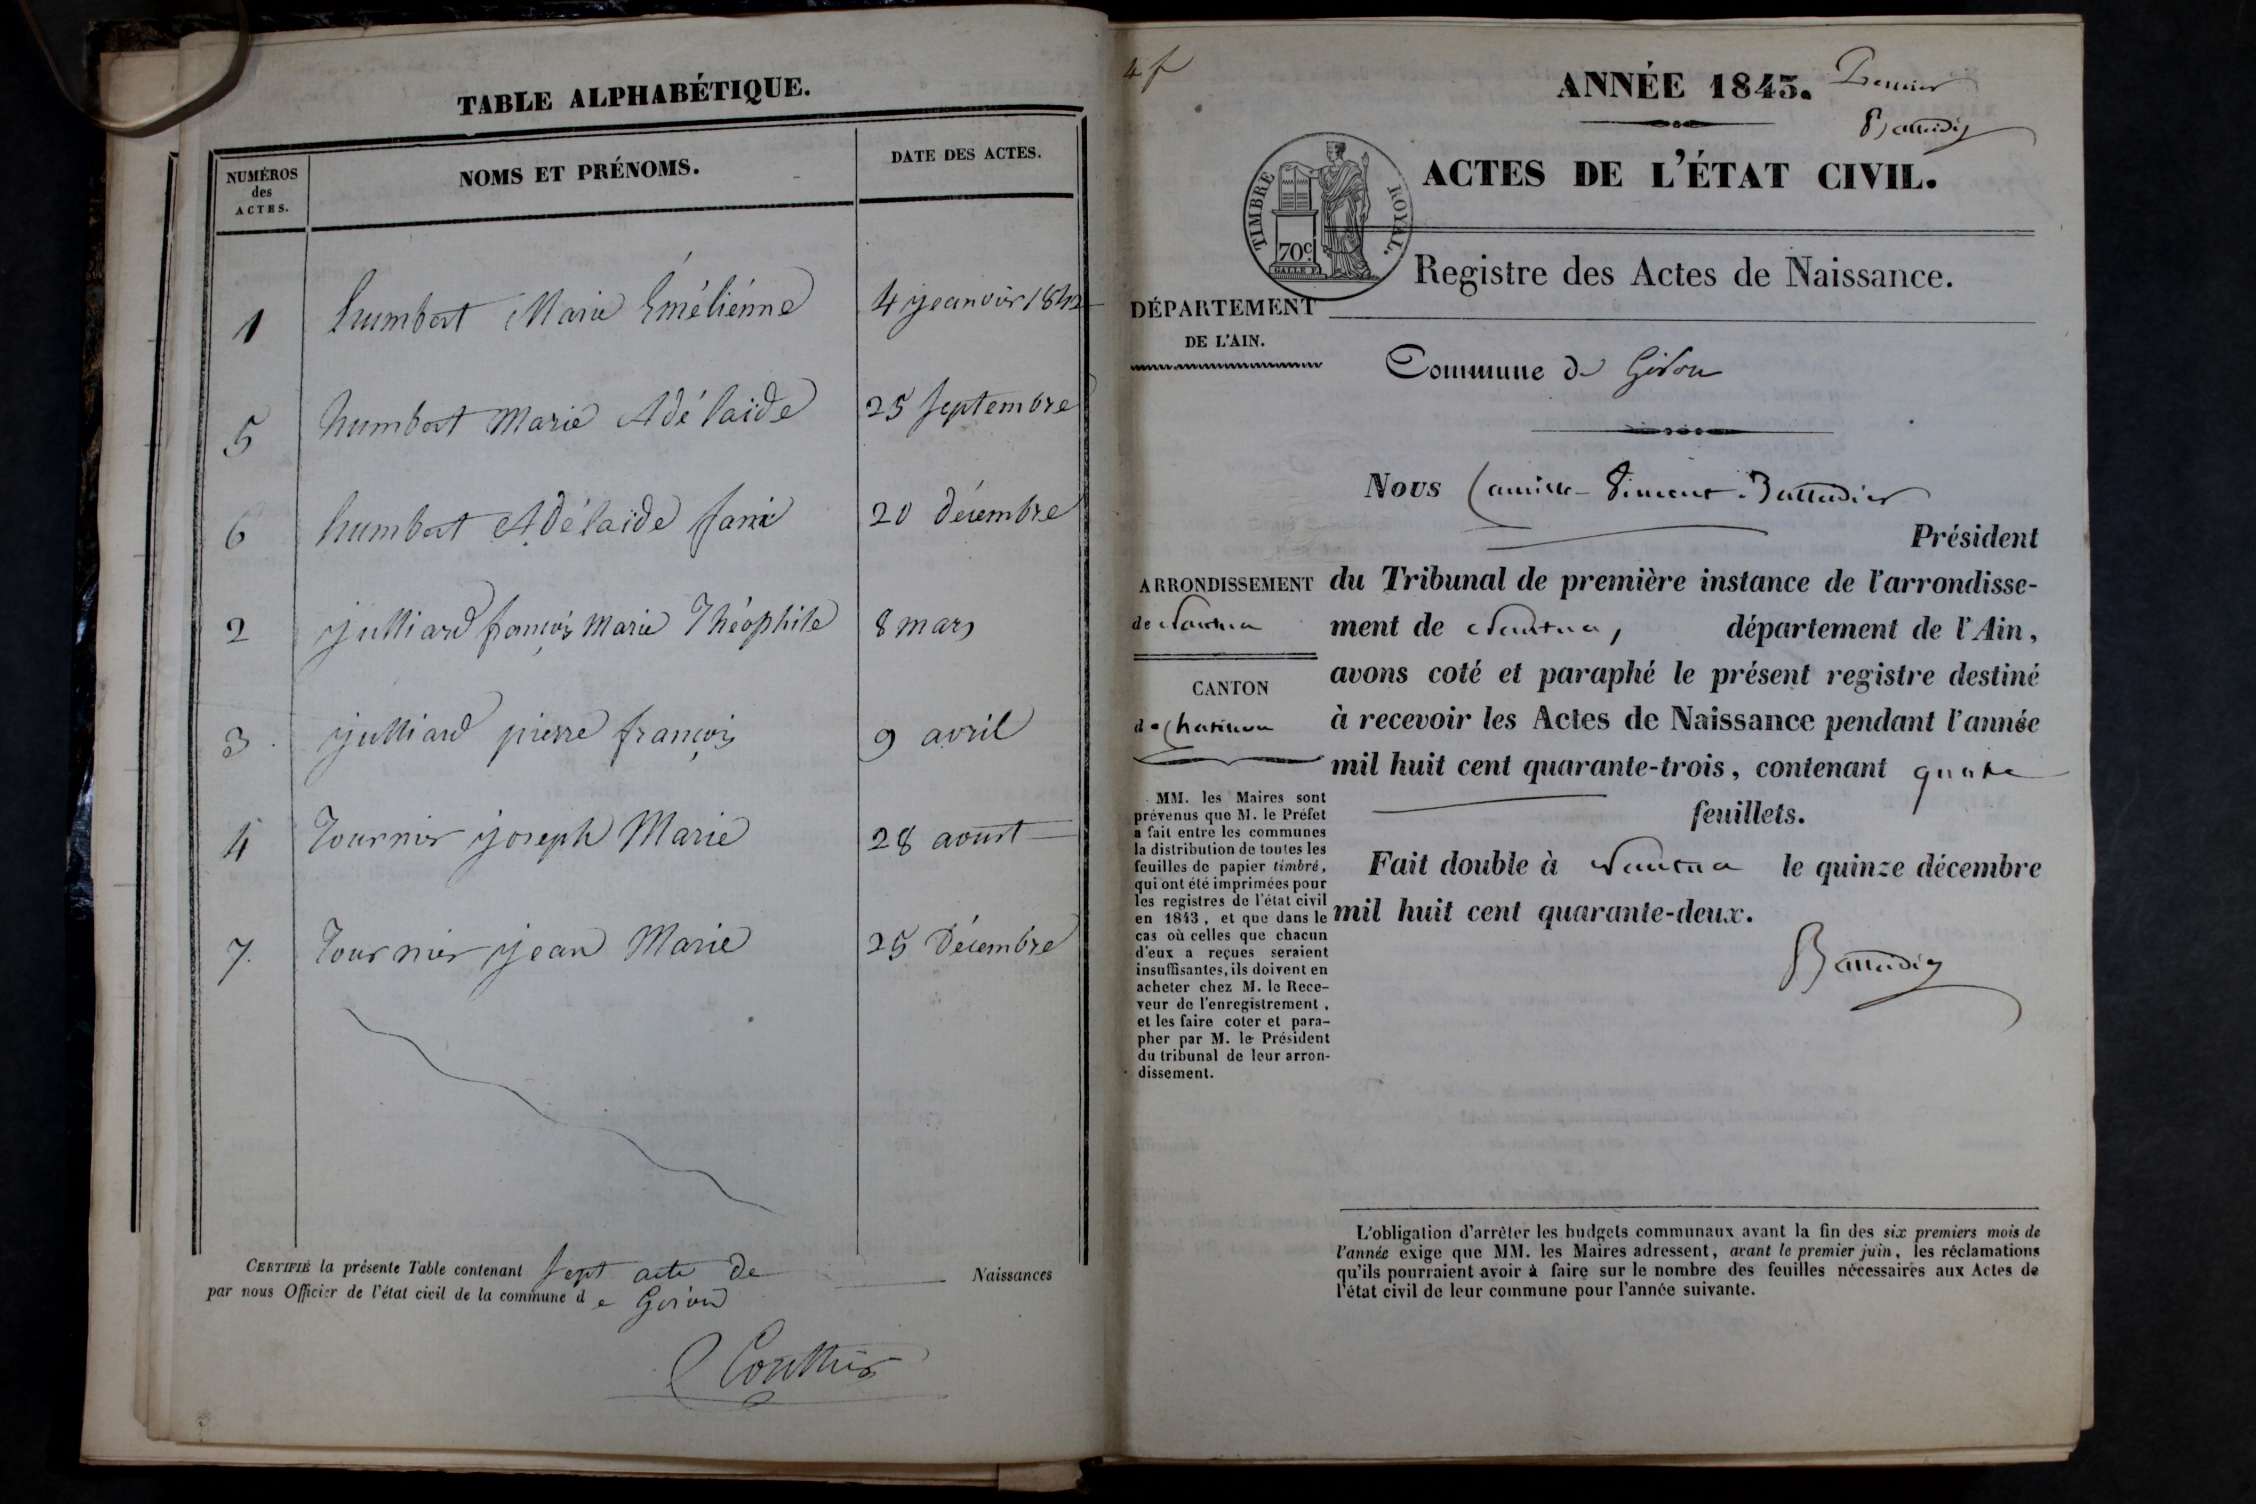 TABLE ALPHABÉTIQUE.
NUMÉROS des ACTES.
NOMS ET PRÉNOMS.
DATE DES ACTES.
1 humbert Marie Emélienne 4 jeanvier 1842
5 humbert Marie Adélaide 25 septembre
6 humbert Adélaide fani 20 décembre
2 julliard françois Marie Théophile 8 mars
3 julliard pierre françois 9 avril
4 Tournier joseph Marie 28 aoust
7. Tournier jean Marie 25 Décembre
CERTIFIÉ la présente Table contenant sept acte de Naissances
par nous Officier de l'état civil de la commune de Giron
4 f
ANNÉE 1843. Premier
Battudier
ACTES DE L'ÉTAT CIVIL.
TIMBRE ROYAL.
70c
Registre des Actes de Naissance.
DÉPARTEMENT
DE L'AIN.
Commune de Giron
Nous Camille Vincent
Président
ARRONDISSEMENT
de Nantua
CANTON
de Chatillon
du Tribunal de première instance de l'arrondisse-
ment de Nantua, département de l'Ain,
avons coté et paraphé le présent registre destiné
à recevoir les Actes de Naissance pendant l'année
mil huit cent quarante-trois, contenant quatre
feuillets.
Fait double à Nantua le quinze décembre
mil huit cent quarante-deux.
MM. les Maires sont
prévenus que M. le Préfet
a fait entre les communes
la distribution de toutes les
feuilles de papier timbré,
qui ont été imprimées pour
les registres de l'état civil
en 1843, et que dans le
cas où celles que chacun
d'eux a reçues seraient
insuffisantes, ils doivent en
acheter chez M. le Rece-
veur de l'enregistrement,
et les faire coter et para-
pher par M. le Président
du tribunal de leur arron-
dissement.
L'obligation d'arrêter les budgets communaux avant la fin des six premiers mois de
l'année exige que MM. les Maires adressent, avant le premier juin, les réclamations
qu'ils pourraient avoir à faire sur le nombre des feuilles nécessaires aux Actes de
l'état civil de leur commune pour l'année suivante.